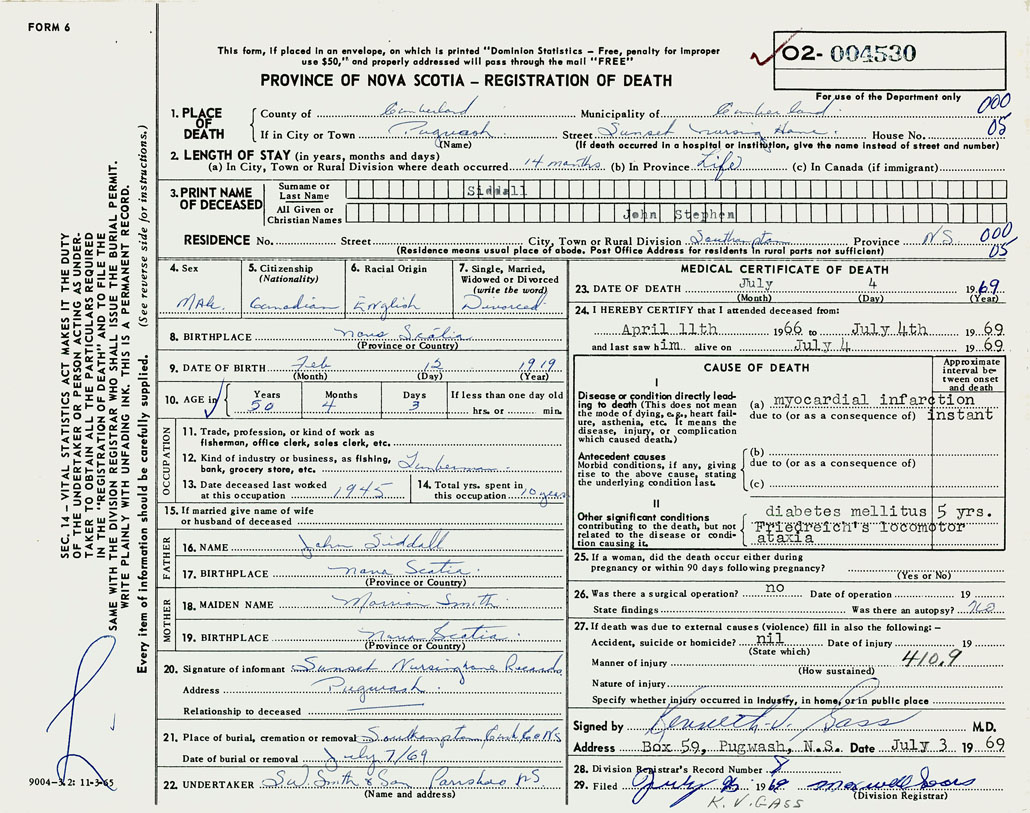 FORM 6
This form, if placed in an envelope, on which is printed "Dominion Statistics – Free, penalty for improper
use $50," and properly addressed will pass through the mail "FREE"
PROVINCE OF NOVA SCOTIA – REGISTRATION OF DEATH
02- 004530
For use of the Department only
000
05
1. PLACE OF DEATH
County of Cumberland Municipality of Cumberland
If in City or Town Pugwash Street Sunset Nursing Home House No.
(Name) (If death occurred in a hospital or institution, give the name instead of street and number)
2. LENGTH OF STAY (in years, months and days)
(a) In City, Town or Rural Division where death occurred 14 months (b) In Province Life (c) In Canada (if immigrant)
3. PRINT NAME OF DECEASED
Surname or Last Name Siddall
All Given or Christian Names John Stephen
RESIDENCE No. Street City, Town or Rural Division Southampton Province N S 000
(Residence means usual place of abode. Post Office Address for residents in rural parts not sufficient) 05
4. Sex Male
5. Citizenship (Nationality) Canadian
6. Racial Origin English
7. Single, Married, Widowed or Divorced (write the word) Divorced
8. BIRTHPLACE Nova Scotia
(Province or Country)
9. DATE OF BIRTH Feb 12 1919
(Month) (Day) (Year)
10. AGE in Years 50 Months 4 Days 3 If less than one day old hrs. or min.
OCCUPATION
11. Trade, profession, or kind of work as
fisherman, office clerk, sales clerk, etc.
12. Kind of industry or business, as fishing,
bank, grocery store, etc. Lumberman
13. Date deceased last worked at this occupation 1945
14. Total yrs. spent in this occupation 10 years
15. If married give name of wife
or husband of deceased
FATHER
16. NAME John Siddall
17. BIRTHPLACE Nova Scotia
(Province or Country)
MOTHER
18. MAIDEN NAME Smith
19. BIRTHPLACE Nova Scotia
(Province or Country)
20. Signature of informant Sunset Nursinghome Records
Address Pugwash
Relationship to deceased
21. Place of burial, cremation or removal Southampton NS
Date of burial or removal July 7/69
22. UNDERTAKER Smith & Son Parrsboro NS
(Name and address)
MEDICAL CERTIFICATE OF DEATH
23. DATE OF DEATH July 4 1969
(Month) (Day) (Year)
24. I HEREBY CERTIFY that I attended deceased from:
April 11th 1966 to July 4th 1969
and last saw him alive on July 4 1969
CAUSE OF DEATH
Approximate interval between onset and death
I
Disease or condition directly leading to death (This does not mean the mode of dying, e.g., heart failure, asthenia, etc. It means the disease, injury, or complication which caused death.)
(a) myocardial infarction
due to (or as a consequence of) instant
Antecedent causes
Morbid conditions, if any, giving rise to the above cause, stating the underlying condition last.
(b)
due to (or as a consequence of)
(c)
II
Other significant conditions contributing to the death, but not related to the disease or condition causing it.
diabetes mellitus 5 yrs.
Friedreich's locomotor
ataxia
25. If a woman, did the death occur either during
pregnancy or within 90 days following pregnancy?
(Yes or No)
26. Was there a surgical operation? no Date of operation 19
State findings Was there an autopsy? no
27. If death was due to external causes (violence) fill in also the following:–
Accident, suicide or homicide? nil Date of injury 19
(State which)
Manner of injury 410.9
(How sustained)
Nature of injury
Specify whether injury occurred in industry, in home, or in public place
Signed by Kenneth V. Gass M.D.
Address Box 59, Pugwash, N.S. Date July 3 1969
28. Division Registrar's Record Number 8
29. Filed July 1969
(Division Registrar)
K. V. GASS
SEC. 14 – VITAL STATISTICS ACT MAKES IT THE DUTY
OF THE UNDERTAKER OR PERSON ACTING AS UNDER-
TAKER TO OBTAIN ALL THE PARTICULARS REQUIRED
IN THE "REGISTRATION OF DEATH" AND TO FILE THE
SAME WITH THE DIVISION REGISTRAR WHO SHALL ISSUE THE BURIAL PERMIT.
WRITE PLAINLY WITH UNFADING INK. THIS IS A PERMANENT RECORD.
Every item of information should be carefully supplied. (See reverse side for instructions.)
9004-3.2: 11-3-65